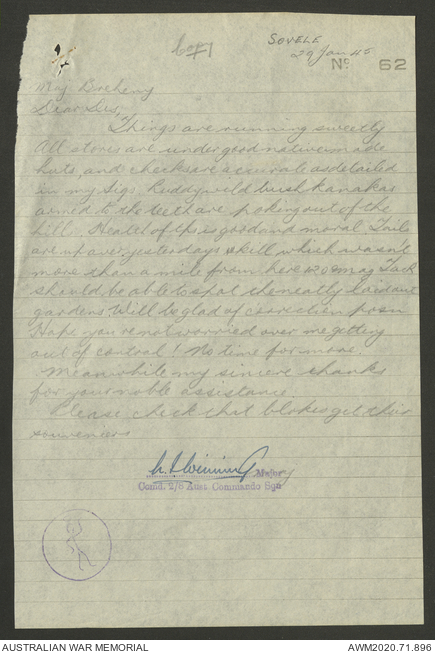 Copy
SOVELE
29 Jan 45
No 62
Maj. Docheny
Dear Les,
Things are running sweetly
All stores are under good native made
huts, and checks are accurate as detailed
in my Sigs. Ruddy wild bush Kanakas
armed to the teeth are poking out of the
hill. Health of tps is good and moral. Tails
are up over yesterdays skill which wasn't
more than a mile from here 120° mag. Jack
should be able to spot the neatly laid out
gardens. Will be glad of correction posn
Hope you're not worried over me getting
out of control! No time for more.
Meanwhile my sincere thanks
for your noble assistance.
Please check that blokes get their
souveniers
Major
Comd. 2/8 Aust Commando Sqn
AUSTRALIAN WAR MEMORIAL
AWM2020.71.896